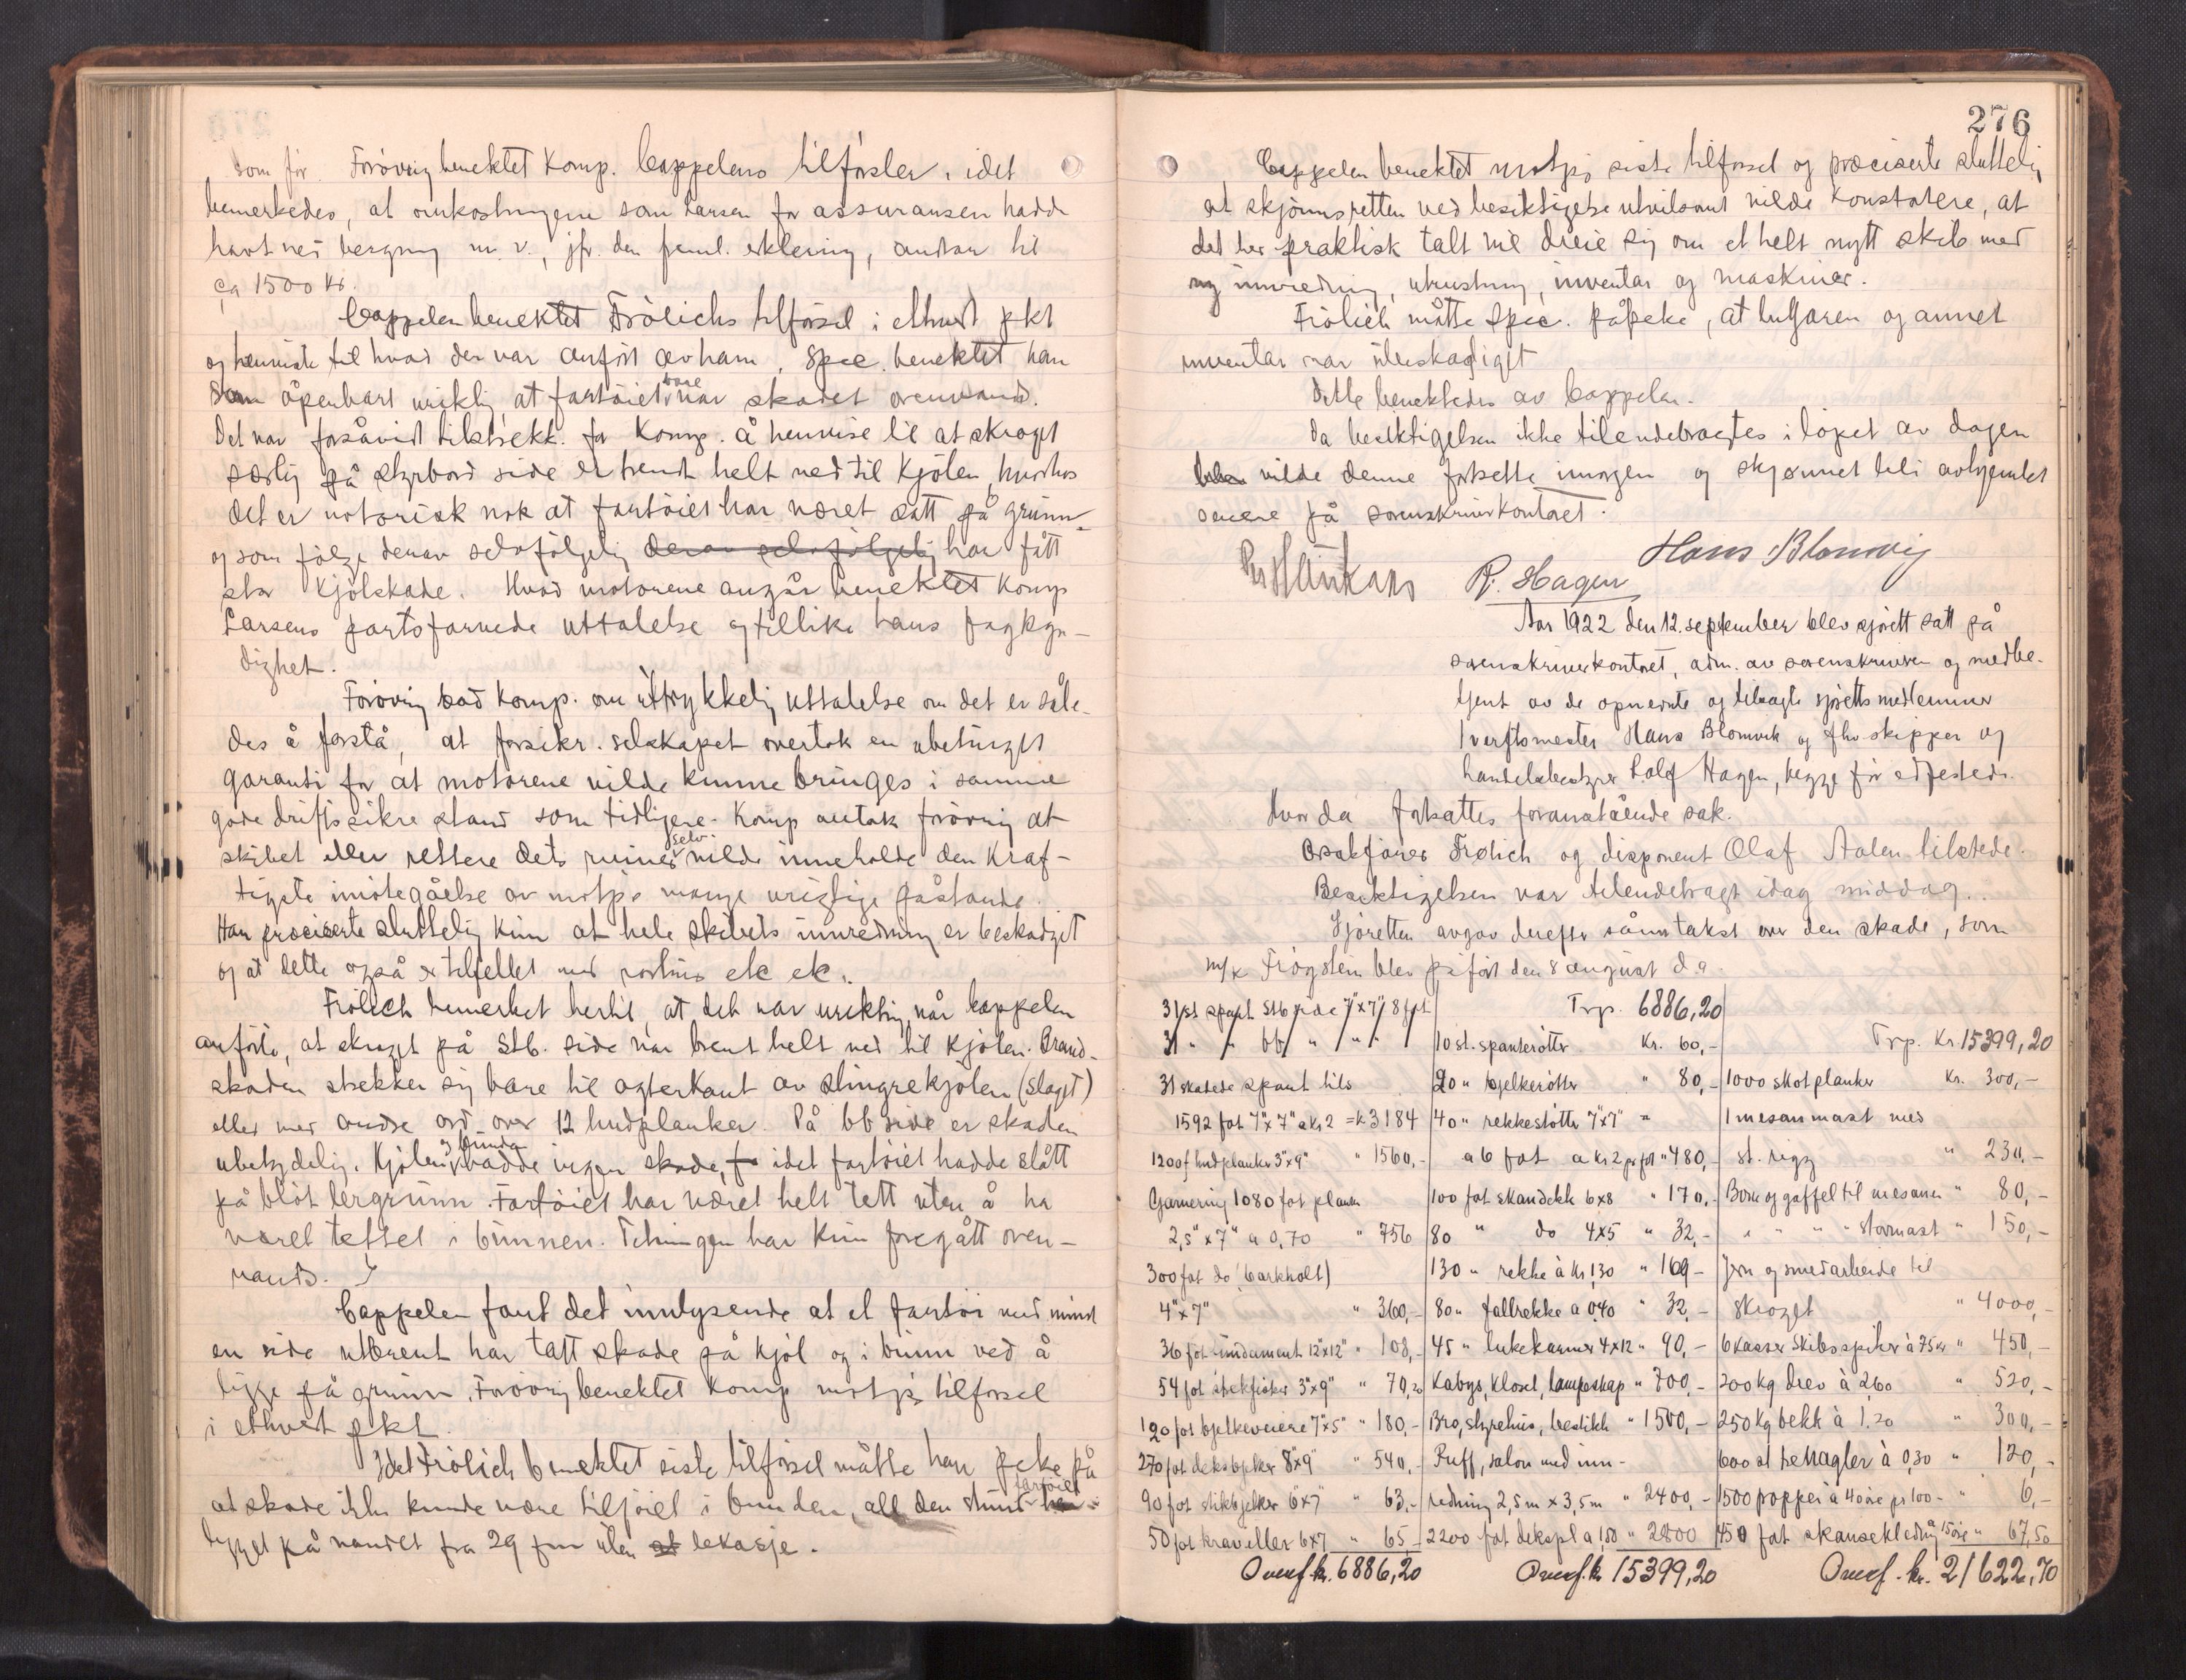 som før. Forøvrig benektet Komp. Cappelens tilførsler, idet
bemerkedes, at omkostningene som Larsen for assuransen hadde
havt ved bergning m. v., jfr. den freml. erklering, andrar til
ca 1500 kr.
Cappelen benektet Frölichs tilførsel i ethvert pkt
og henviste til hvad der var anført av ham. Spec. benektet han
som åpenbart uriktig at fartöiet bare var skadet ovenvands.
Det var forsåvidt tilstrekk. for Komp. å henvise til at skroget
særlig på styrbord side er brent helt ned til Kjölen, hvorhos
det er notorisk nok at fartöiet har været satt på grunn
og som fölge derav selvfölgelig derav selvfölgelig har fått
stor Kjölskade. Hvad motorene angår benektet Komp
Larsens partsfarvede uttalelse og tillike hans fagkyn-
dighet.
Forövrig bad Komp. om uttrykkelig uttalelse om det er såle-
des å forstå, at forsikr. selskapet overtok en ubetinget
garanti for at motorene vilde kunne bringes i samme
gode driftssikre stand som tidligere. Komp antok forövrig at
skibet eller rettere dets ruiner selv vilde inneholde den kraf-
tigste imötegåelse av motp.s mange urigtige påstande.
Han preciserte sluttelig kun at hele skibets innredning er beskadiget
og at dette også er tilfellet med rorhus etc etc.
Frölich bemerket hertil, at det var uriktig når Cappelen
anförte, at skroget på Stb. side var brent helt ned til kjölen. Brand-
skaden strekker sig bare til agterkant av slingrekjölen (slaget)
eller med andre ord over 12 hudplanker. På bb side er skaden
ubetydelig. Kjölen og bunden hadde ingen skade, idet fartöiet hadde stått
på blöt lergrunn. Fartöiet har været helt tett uten å ha
været tettet i bunnen. Tetningen har kun foregått oven-
vands.
Cappelen fant det innlysende at et fartöi med minst
en side utbrent har tatt skade på kjöl og i bunn ved å
ligge på grunn. Forövrig benektet Komp motp.s tilförsel
i ethvert pkt.
Idet Frölich benektet siste tilförsel måtte han peke på
at skade ikke kunde være tilföiet i bunden, all den stund fartöiet har
ligget på vandet fra 29 uten at lekasje.
276
Cappelen benektet motp.s siste tilførsel og præciserte sluttelig
at skjønnsretten ved besiktigelse utvilsomt vilde konstatere, at
det her praktisk talt vil dreie sig om et helt nytt skib med
ny innredning, utrustning, inventar og maskiner.
Frölich måtte spec. påpeke, at lugaren og annet
inventar var ubeskadiget
Dette benektedes av Cappelen.
Da besiktigelsen ikke tilendebragtes i löpet av dagen
vilde denne fortsette imorgen og skjønnet bli avhjemlet
senere på sorenskriverkontoret.
Hans Blomvig
R. Hagen
Aar 1922 den 12. september blev sjørett satt på
sorenskriverkontoret, adm. av sorenskriveren og medbe-
tjent av de opnevnte og tiltagte sjöretts medlemmer
verftsmester Hans Blomvik og fhv skipper og
handelsbestyrer Rolf Hagen, begge för edfestede.
Hvor da fortsattes foranstående sak.
Osakförer Frølich og disponent Olaf Aalen tilstede.
Besiktigelsen var tilendebragt idag middag.
Sjöretten avgav derefter sånn takst over den skade, som
m/k Frögstein blev påfört den 8 august d.a.
31 st spant Stb side 7"x7" 8 fot
31 " " bb " " "
31 skadede spant tils
1592 fot 7"x7" a kr 2 = k 3184
1200 f hudplanker 3"x9" " 1560,-
Garnering 1080 fot planker
2,5"x7" a 0,70 " 756
300 fot do (barkholt)
4"x7" " 360,-
36 fot fundament 12"x12" " 108,-
54 fot stekfisker 3"x9" " 70,20
120 fot bjelkeveiere 7"x5" " 180,-
270 fot deksbjelker 8"x9" " 540,-
90 fot stikbjelker 6"x7" " 63,-
50 fot kraveller 6x7 " 65,-
Overf. kr. 6886,20
Trp. 6886,20
10 st. spanterötter kr. 60,-
20 " bjelkerötter " 80,-
40 " rekkestötter 7"x7" =
a 6 fot a kr 2 pr fot " 480,-
100 fot skandekk 6x8 " 170,-
80 " do 4x5 " 32,-
130 " rekke à kr 1,30 " 169-
80 " fallrekke a 0,40 " 32,-
45 " lukekarmer 4x12 " 90,-
Kabys, Kloset, lampeskap " 700,-
Bro, styrehus, bestikk " 1500,-
Ruff, salon med inn-
redning 2,5m x 3,5m " 2400,-
2200 fot dekspl a 1,50 " 2800
Overf. kr 15399,20
Trp. Kr. 15399,20
1000 skotplanker kr. 300,-
1 mesanmast med
st. rigg " 230,-
Bom og gaffel til mesanen " 80,-
" " " " stormast " 150,-
Jern og smedarbeide til
skroget " 4000,-
6 kasser skibsspiker à 75 kr " 450,-
200 kg drev à 2,60 " 520,-
250 kg bekk à 1.20 " 300,-
600 st trenagler à 0,30 " 120,-
1500 propper à 40 öre pr 100- " 6,-
450 fot skansekledning à 15 öre " 67,50
Overf. kr. 21622,70